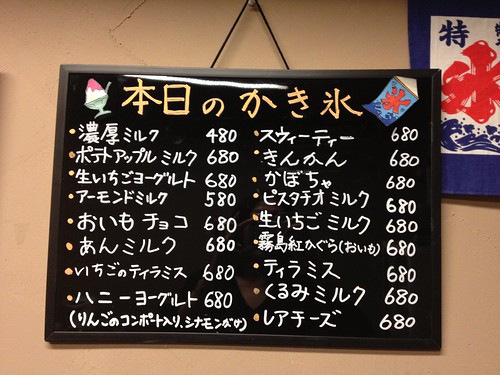 本日のかき氷
氷
・濃厚ミルク 480
・ポテトアップルミルク 680
・生いちごヨーグルト 680
・アーモンドミルク 580
・おいもチョコ 680
・あんミルク 680
・いちごのティラミス 680
・ハニーヨーグルト 680
(りんごのコンポート入り、シナモンがけ)
・スウィーティー 680
・きんかん 680
・かぼちゃ 680
・ピスタチオミルク 680
・生いちごミルク 680
・霧島紅はぐら(おいも) 680
・ティラミス 680
・くるみミルク 680
・レアチーズ 680
特
氷